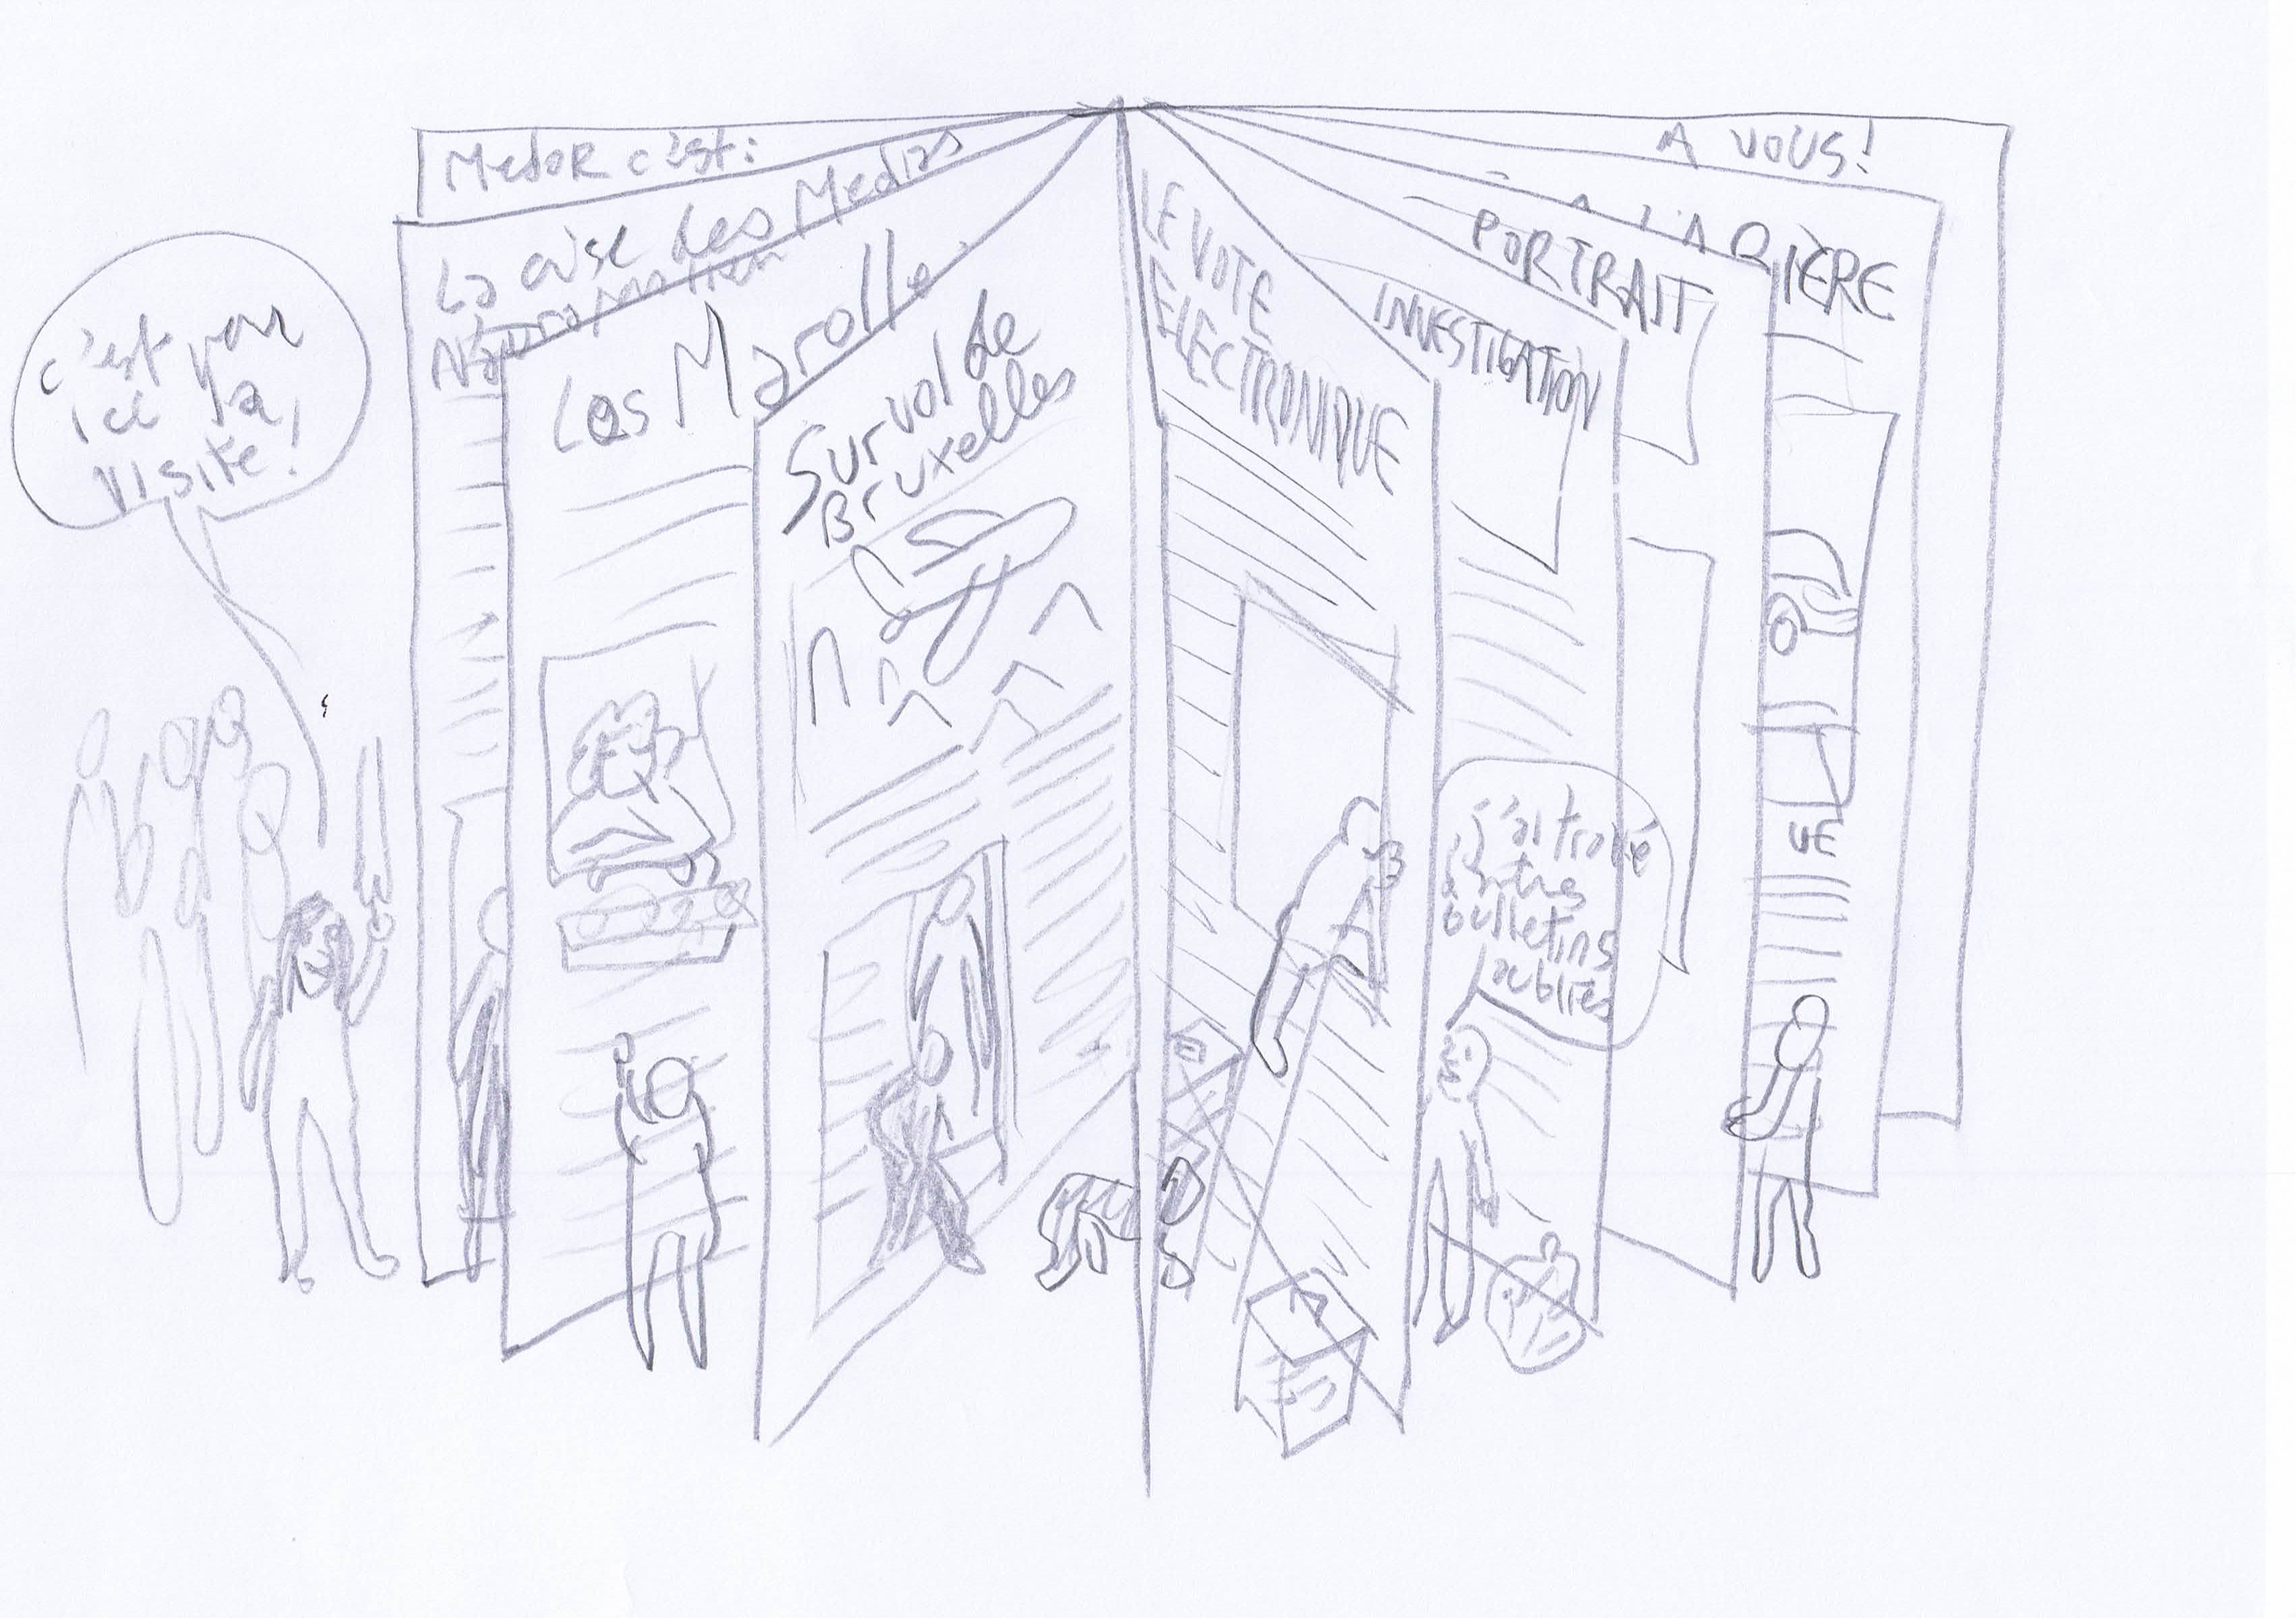 c'est par
ici la
visite!
MEDOR c'est:
La crise des Medias
Les Marolle
Survol de
Bruxelles
LE VOTE
ELECTRONIQUE
INVESTIGATION
PORTRAIT
A VOUS!
j'ai trouvé
d'autres
bulletins
oubliés